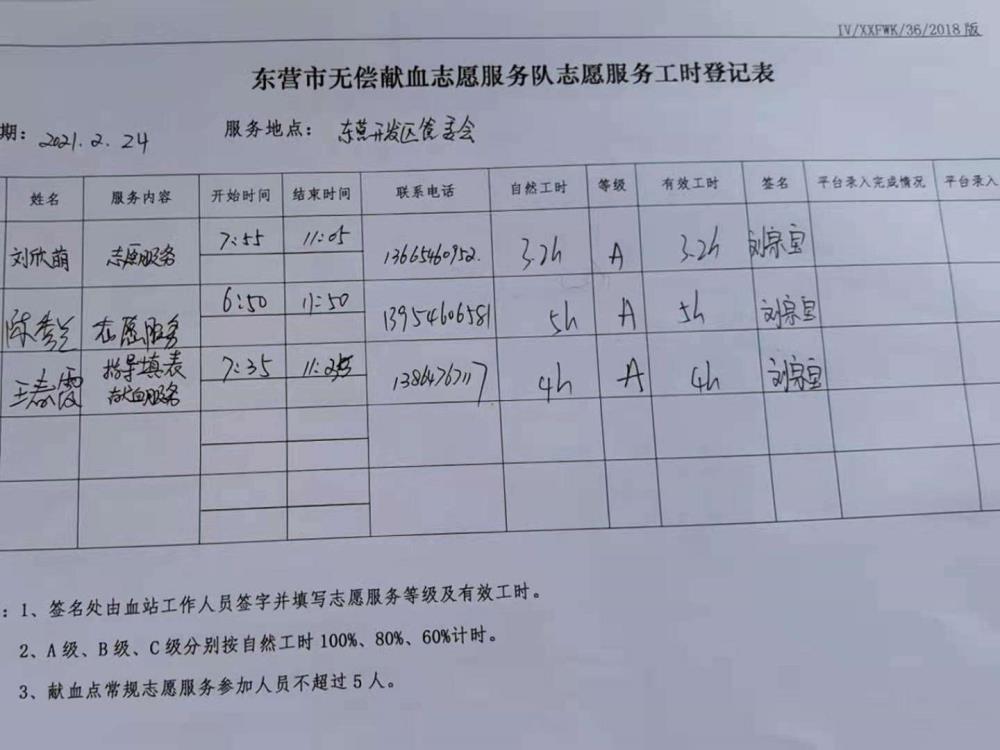 IV/XXFWK/36/2018版
东营市无偿献血志愿服务队志愿服务工时登记表
期: 2021.2.24 服务地点: 东营开发区管委会
姓名 服务内容 开始时间 结束时间 联系电话 自然工时 等级 有效工时 签名 平台录入完成情况 平台录入
刘欣萌 志愿服务 7:55 11:05 13665460952. 3.2h A 3.2h 刘宗宝
陈秀兰 志愿服务 6:50 11:50 13954606581 5h A 5h 刘宗宝
王春霞 指导填表 7:35 11:35 1386476717 4h A 4h 刘宗宝
献血服务
:1、签名处由血站工作人员签字并填写志愿服务等级及有效工时。
2、A级、B级、C级分别按自然工时100%、80%、60%计时。
3、献血点常规志愿服务参加人员不超过5人。